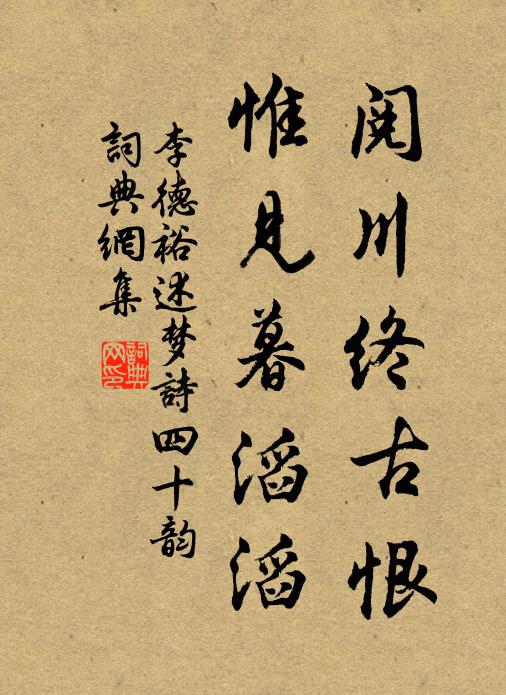 阅川终古恨
惟见暮滔滔
李德裕述梦詩四十韵
詞典網集
詞典网印